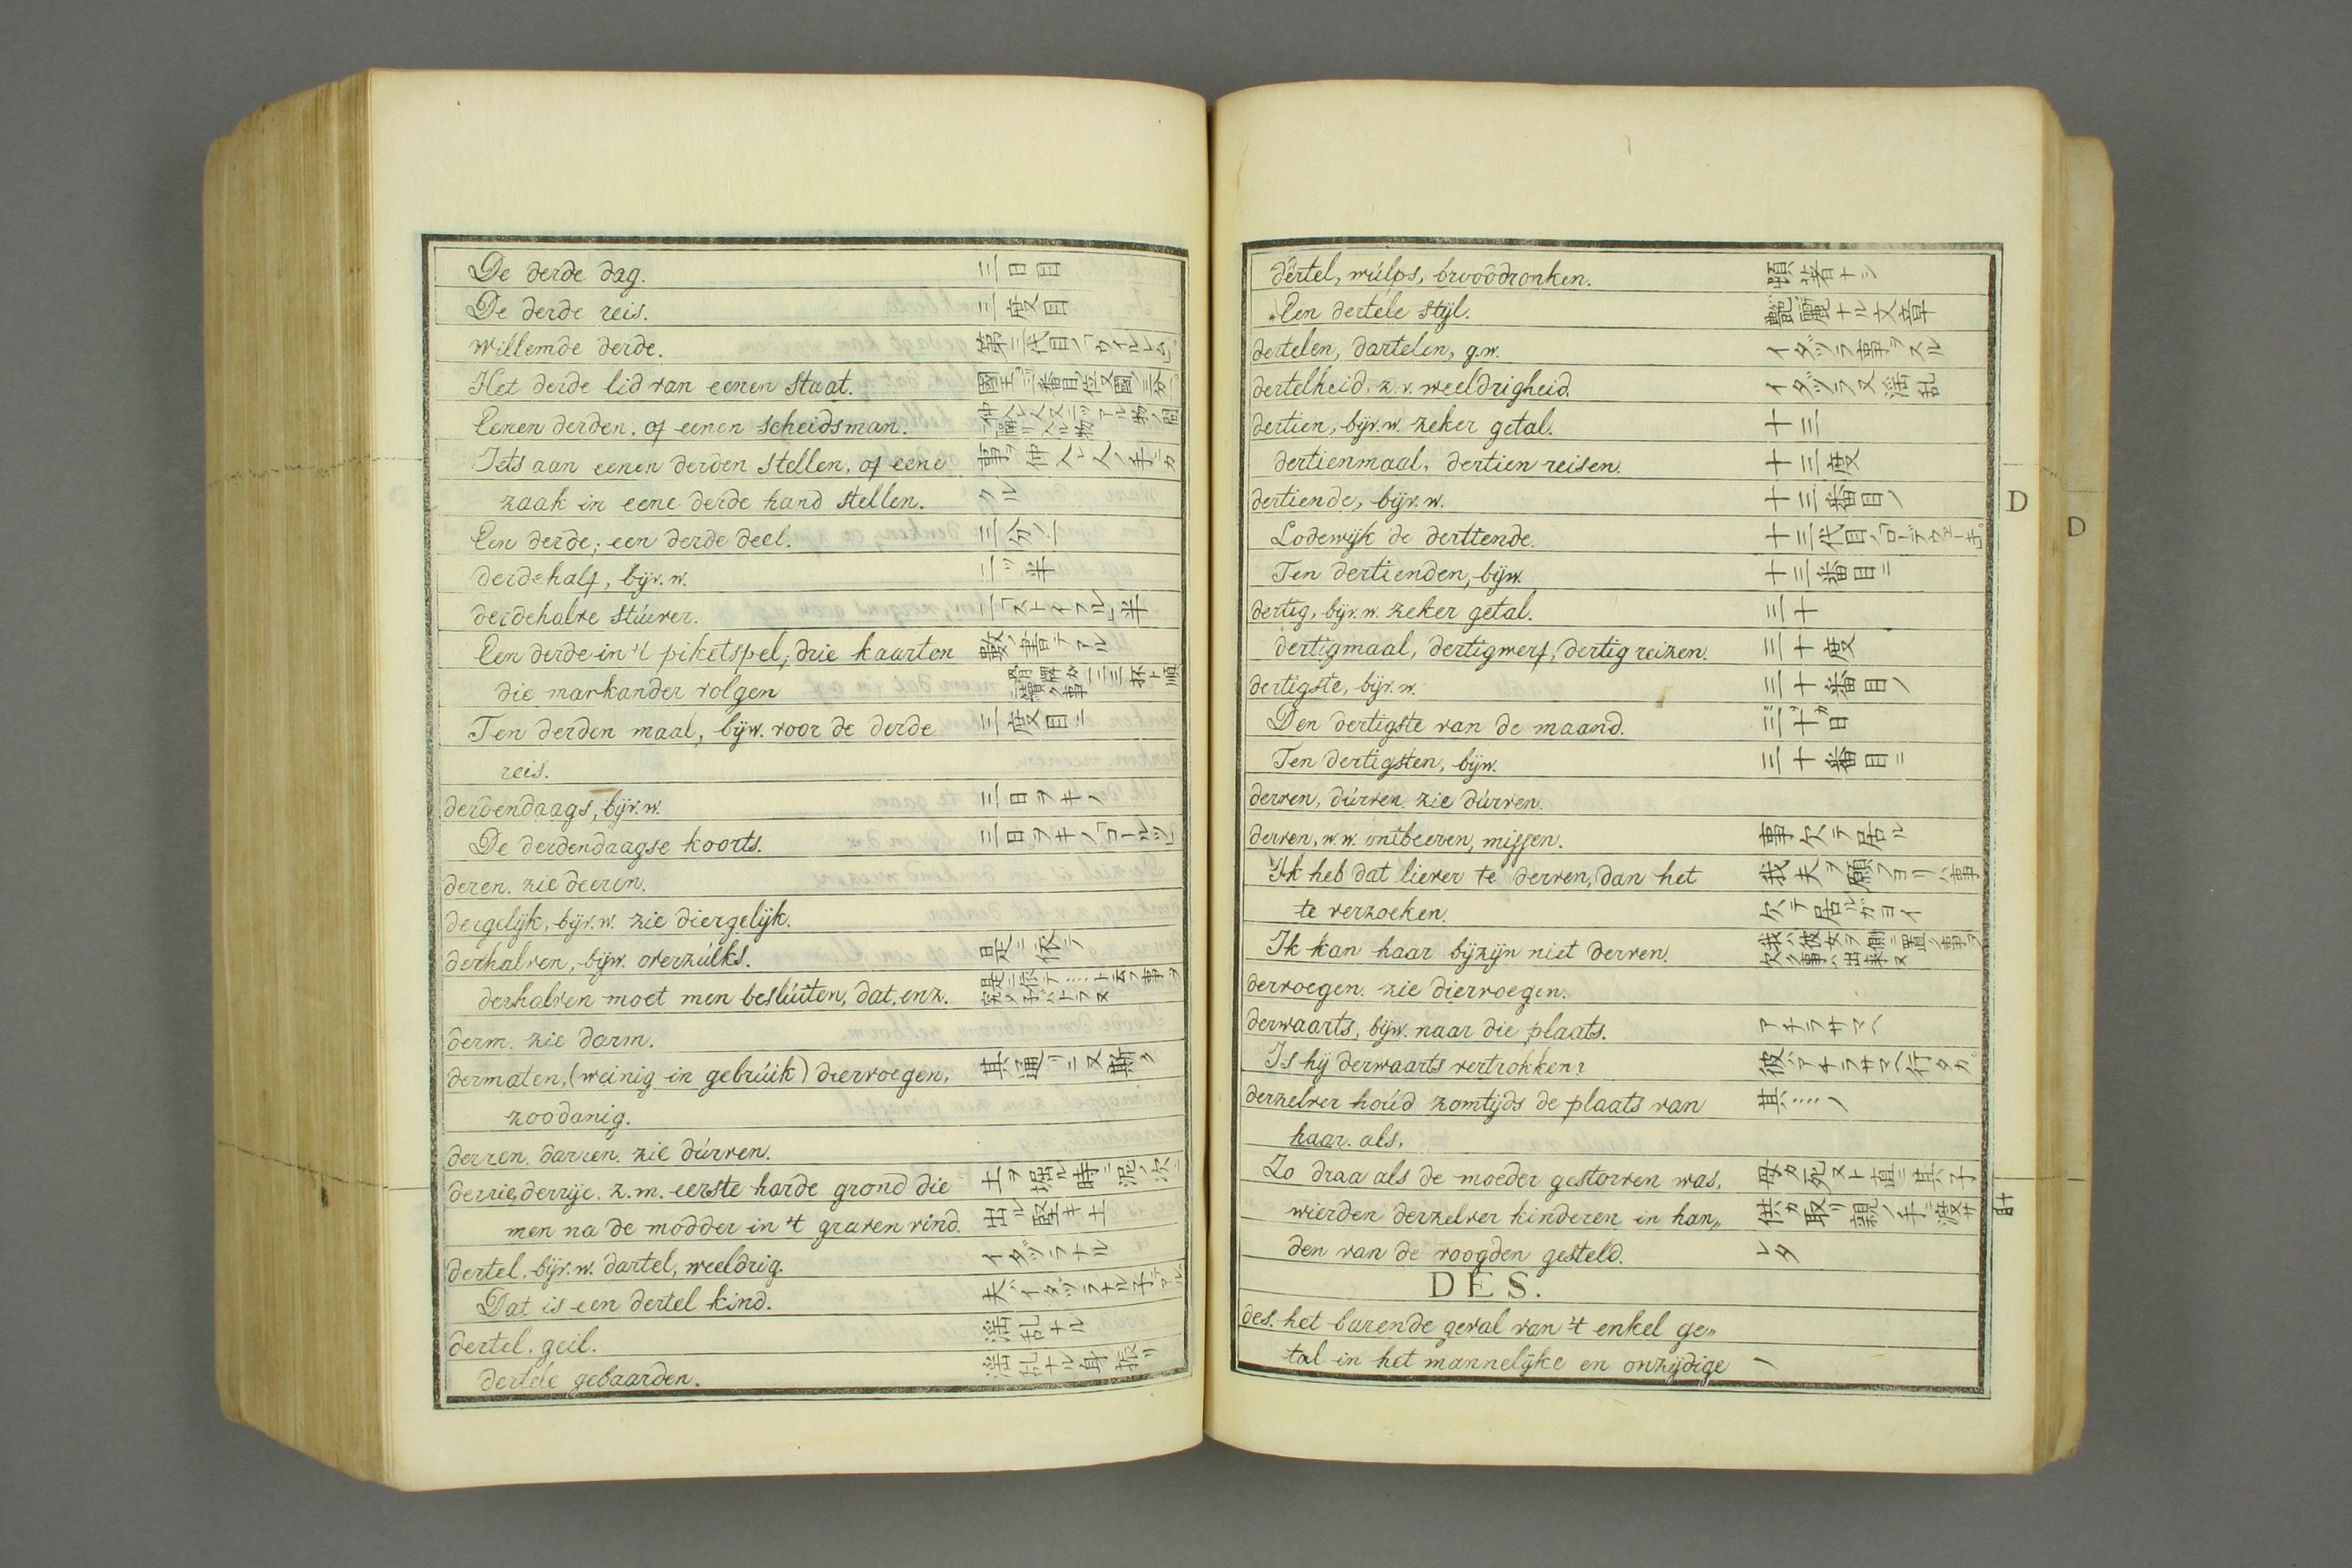 De derde dag. 三日目
De derde reis. 三度目
Willemde derde. 第三代目ノ「ウイルレム」
Het derde lid van eenen staat.
Eenen derden. of eenen scheidsman.
Iets aan eenen derden stellen, of eene 事ヲ仲人レ人ノ手ニカ
zaak in eene derde hand stellen. クル
Een derde; een derde deel. 三分ノ一
derdehalf, bijv. w. 二ツ半
derdehalve stúiver. 二「ストイフル」半
Een derde in 't piketspel; drie kaarten
die markander volgen
Ten derden maal, bijw. voor de derde 三度目ニ
reis.
derdendaags, bijv. w. 三日ヲキノ
De derdendaagse koorts. 三日ヲキノ「コールツ」
deren. zie deeren.
dergelijk, bijv. w. zie diergelijk.
derhalven, bijw. overzúlks. 是ニ依テ
derhalven moet men beslúiten, dat, enz. 是ニ依テ....ト云フ事ヲ
derm. zie darm.
dermaten, (weinig in gebrúik) diervoegen, 其通リニ又斯ク
zoodanig.
derren. darren. zie dúrven.
derrie, derrije. z. m. eerste harde grond die 土ヲ堀ル時ニ泥ノ次ニ
men na de modder in 't graven vind. 出ル堅キ土
dertel, bijv. w. dartel, weeldrig. イタヅラナル
Dat is een dertel kind. 夫ハイタヅラナル子デアル
dertel. geil. 淫乱ナル
dertele gebaarden. 淫乱ナル身振リ
dertel, wúlps, broodronken.
Een dertele stijl. 艶麗ナル文章
dertelen, dartelen, g. w. イタヅラ事ヲスル
dertelheid, z. v. weeldrigheid. イタヅラ又淫乱
dertien, bijv. w. zeker getal. 十三
dertienmaal, dertien reisen. 十三度
dertiende, bijv. w. 十三番目ノ
Lodewijk de derttende.
Ten dertienden, bijw. 十三番目ニ
dertig, bijv. w. zeker getal. 三十
dertigmaal, dertigwerf, dertig reizen. 三十度
dertigste, bijv. w. 三十番目ノ
Den dertigste van de maand. 三十日
Ten dertigsten, bijw. 三十番目ニ
derven, dúrven. zie dúrven.
derven, w. w. ontbeeren, missen. 事欠テ居ル
Ik heb dat liever te derven, dan het 我夫ヲ願フヨリハ事
te verzoeken. 欠テ居ルガヨイ
Ik kan haar bijzijn niet derven. 我ハ彼女ヲ側ニ置ク事ヲ欠ク事ハ出来ヌ
dervoegen. zie diervoegen.
derwaarts, bijw. naar die plaats. アチラサマヘ
Is hij derwaarts vertrokken? 彼ハアチラサマヘ行タカ
derzelver hoúd zomtijds de plaats van 其....ノ
haar. als,
Zo draa als de moeder gestorven was, 母カ死ヌト直ニ其子
wierden derzelver kinderen in han„ 供カ取リ親ノ手ニ渡サ
den van de voogden gesteld. レタ
DES.
des. het barende geval van 't enkel ge„
tal in het mannelijke en onzijdige ノ
D
D